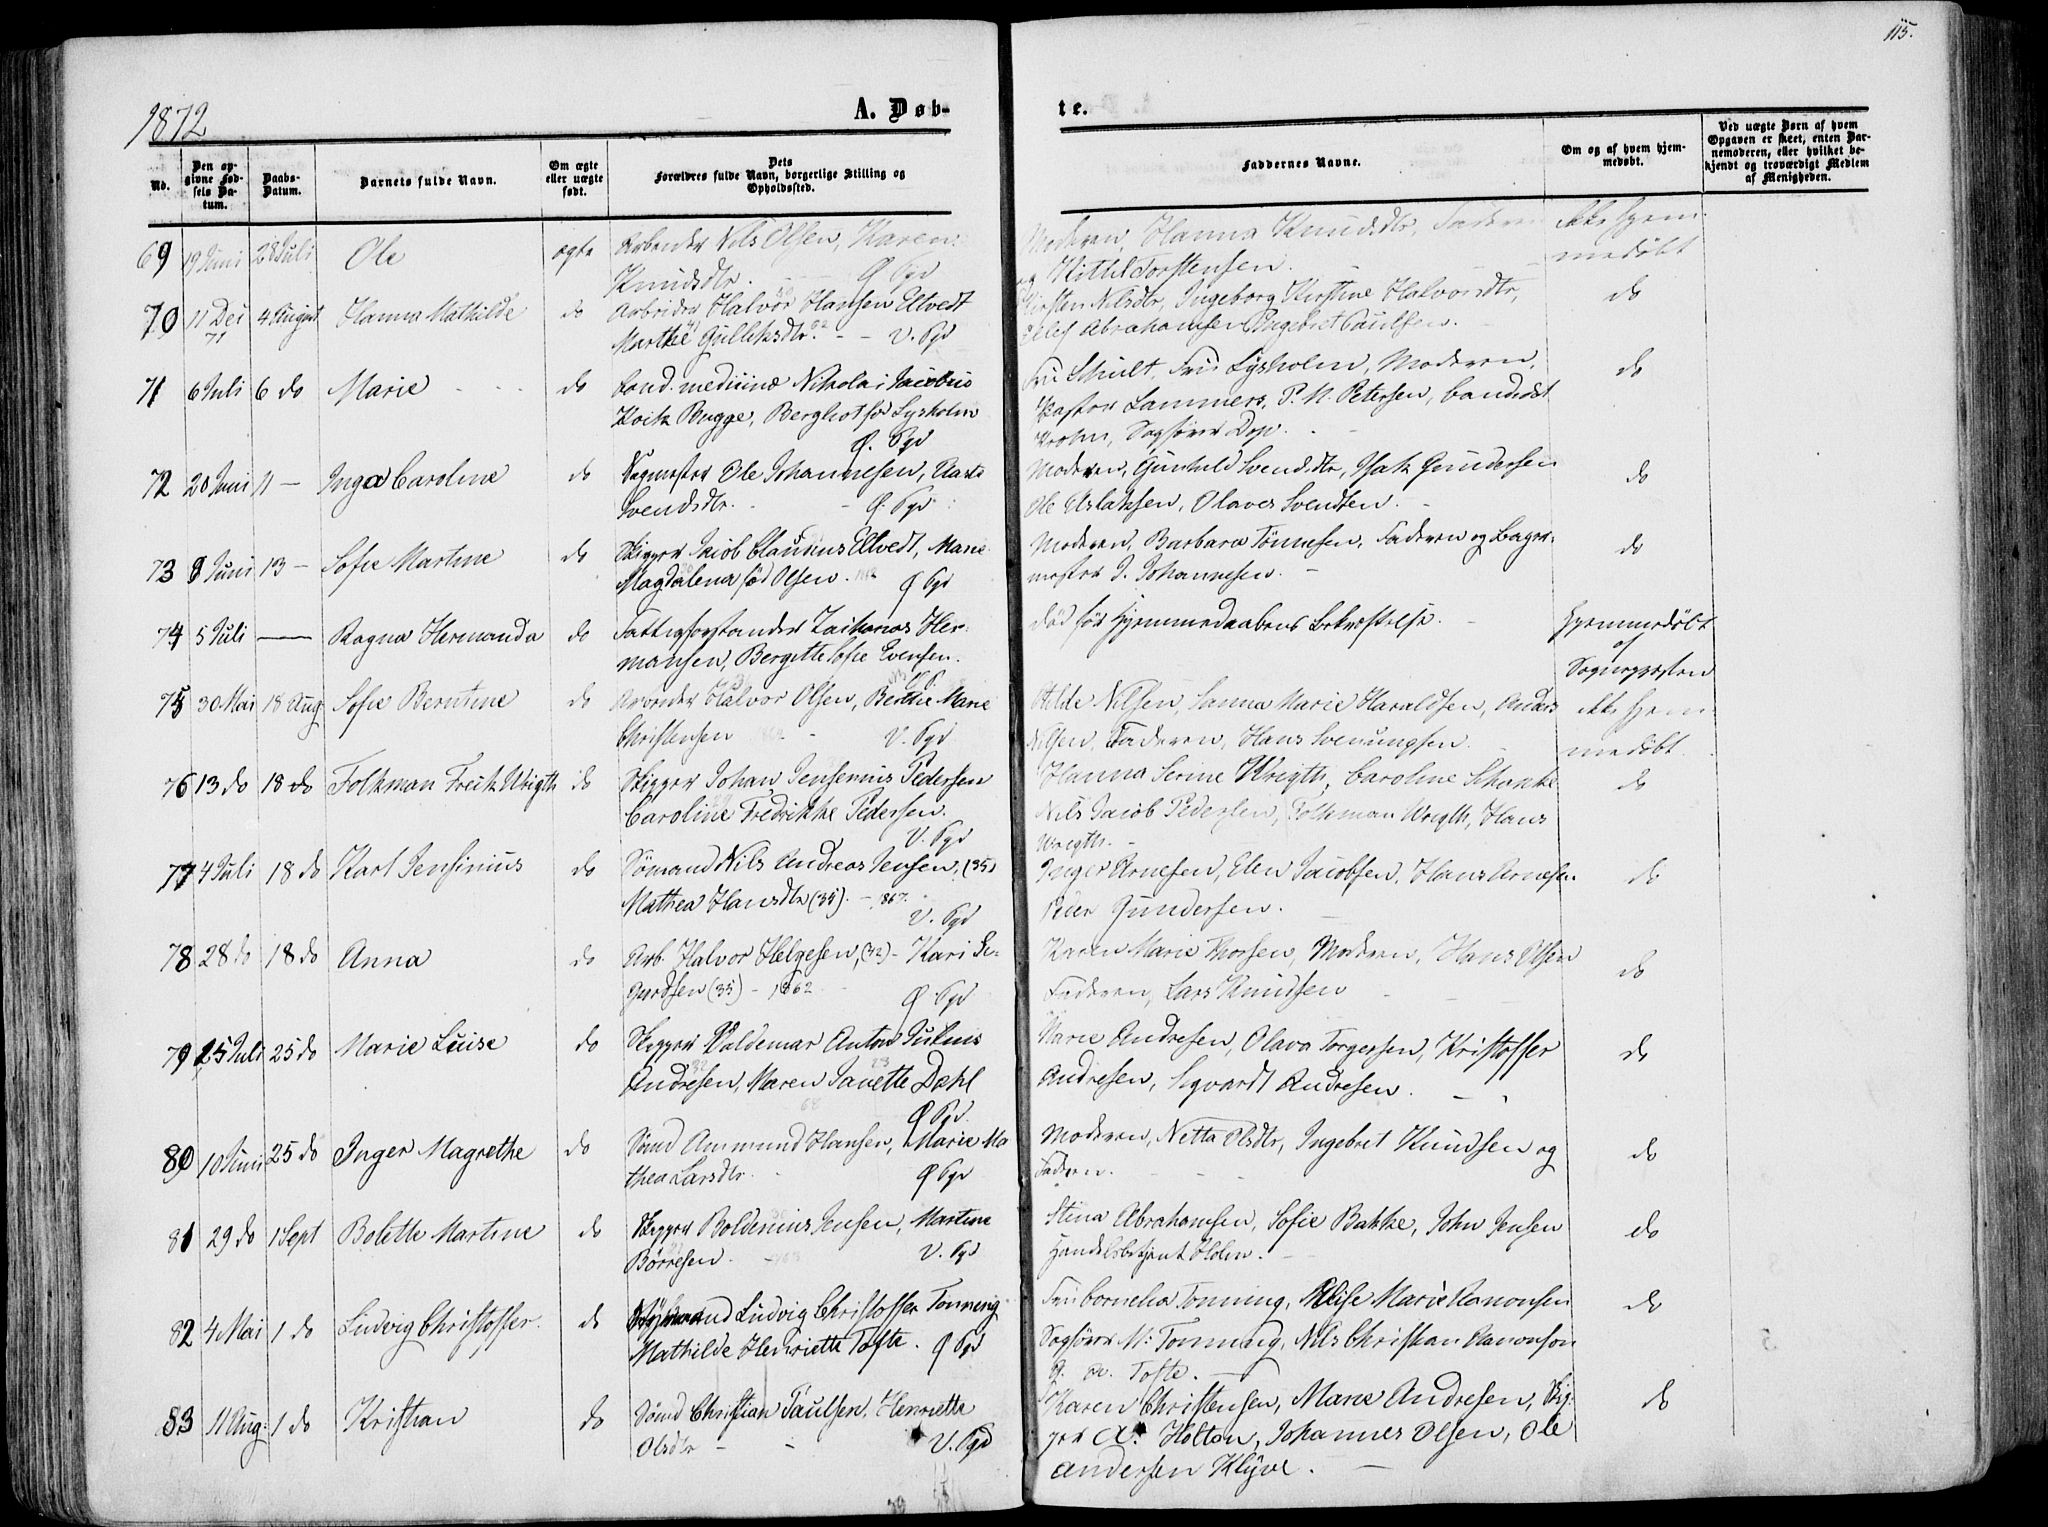 115.
1872
A. Døb-
te.
No.
Den op-
givne Fød-
sels Da-
tum.
Daabs-
Datum.
Barnets fulde Navn.
Om ægte
eller uægte
født.
Dets
Forældres fulde Navn, borgerlige Stilling og
Opholdssted.
Faddernes Navne.
Om og af hvem hjem-
medøbt.
Ved uægte Børn af hvem
Opgaven er skeet, enten Bar-
nemoderen, eller hvilket be-
kjendt og troværdigt Medlem
af Menigheden.
69 19 Juni 28 Juli Ole ægte Arbeider Nils Olsen, Karen
Knudsdtr. Ø Pgd
Moderen, Hanna Knudsdtr, Faderen
og Kittil Torstensen.
ikke hjem-
medøbt
70 11 Dec 71 4 August Hanna Mathilde do Arbeider Halvor Hansen Eltvedt
Marthe Gulliksdtr. V. Pgd
Kirsten Nilsdtr, Ingeborg Kirstine Halvorsdtr,
Abrahamsen Ingebret Paulsen.
do
71 6 Juli 6 do Marie do Cand. medicinæ Nikolai Jacobus
Koch Bugge, Bergliot fød Lysholm
Ø. Pgd
Fru Schult, Fru Lysholm, Moderen,
Pastor Lammers, P. N. Petersen, Candidat
Krohn, Sagfører Dop.
do
72 20 Juni 11 — Inga Caroline do Ole Johannesen, Aaste
Svendsdtr. Ø. Pgd
Moderen, Gunhild Svendsdtr, Isak Gundersen
Ole Aslaksen, Olaves Svendsen.
do
73 8 Juni 13 — Sofie Martine do Skipper Jacob Clausius Eltvedt, Marie
Magdalena fød Olsen. Ø Pgd
Moderen, Barbara Tønnesen, Faderen og Bager-
mester J. Johannesen.
do
74 5 Juli — Ragna Hermanda do Fattigforstander Zacharias Her-
mansen, Bergitte Sofie Evensen.
V. P.
død før Hjemmedaabens Bekræftelse.
Hjemmedøbt
af
Sognepresten
75 30 Mai 18 Aug Sofie Berntine do Arbeider Halvor Olsen, Berthe Marie
Christensen V. Pgd
Hilde Nilsen, Sanna Marie Haraldsen, Anders
Nilsen, Faderen, Hans Svenungsen.
ikke hjem-
medøbt.
76 13 do 18 do Folkman Fredk Wrigth do Skipper Johan Jensenius Pedersen
Caroline Fredrikke Pedersen.
V. Pgd
Hanna Serine Wrigth, Caroline Schanke
Nils Jacob Pedersen, Folkman Wrigth, Hans
Wrigth.
do
77 4 Juli 18 do Karl Jensinius do Sømand Nils Andreas Jensen, (35)
Mathea Hansdtr (35). — 1867.
V. Pgd
Inger Arnesen, Elen Jacobsen, Hans Arnesen
Peder Gundersen.
do
78 28 do 18 do Anna do Arb. Halvor Helgesen, (42) — Kari Si-
gurdsen (35) — 1862
Ø. Pgd
Karen Marie Thorsen, Moderen, Hans Olsen
Faderen, Lars Knudsen
do
79 25 Juli 25 do Marie Luise do Skipper Valdemar Anton Julius
Andresen, Maren Janette Dahl
Ø Pgd.
Marie Andresen, Olava Torgersen, Kristoffer
Andresen, Sigvardt Andresen.
do
80 10 Juni 25 do Inger Magrethe do Sømd Ammund Hansen, Marie Ma
thea Larsdtr. Ø Pgd
Moderen, Netta Olsdtr, Ingebret Knudsen og
Faderen.
do
81 29 do 1 Sept Bolette Martine do Skipper Boldenius Jensen, Martine
Børresen. V. Pgd
Stina Abrahamsen, Sofie Bakke, John Jensen
Handelsbetjent Holm.
do
82 4 Mai 1 do Ludvig Christoffer. do Sømand Ludvig Christoffer Tonning
Mathilde Henriette Tofte. Ø Pgd
Fru Cornelia Tonning, Elise Marie Aanonsen
Sagfører M: Tonning, Nils Christian Aanonsen
Tofte.
do
83 11 Aug. 1 do Kristian do Sømd Christian Paulsen, Henriette
Olsdtr V. Pgd
Karen Christensen, Marie Andresen, Skip-
per A. Holtan, Johannes Olsen, Ole
Andersen Klyve.
do